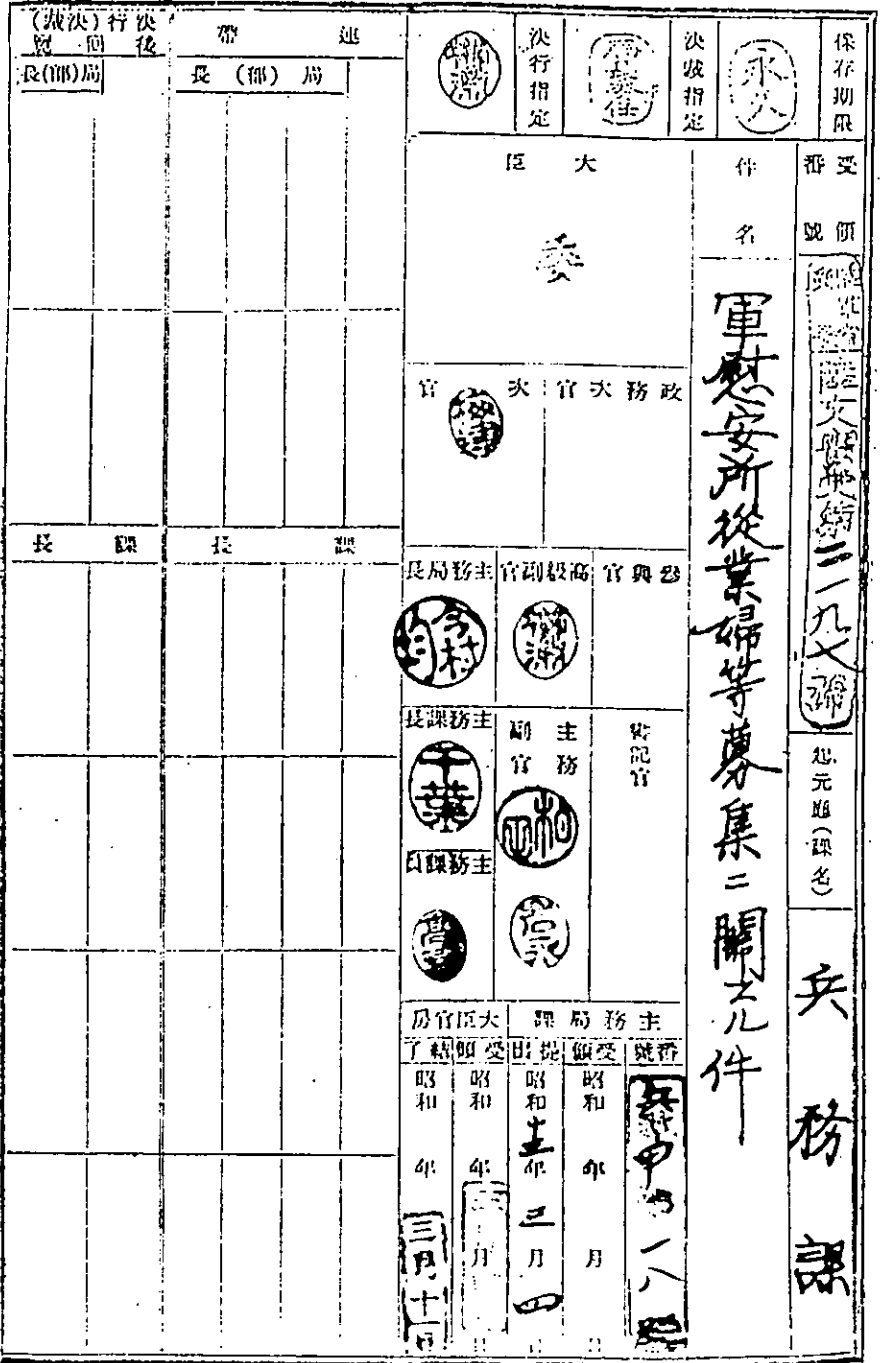 保存期限
永久
決裁指定
決行指定
受領番號
二一九七號
起元廳(課名)
兵務課
件名
軍慰安所從業婦等募集ニ關スル件
大臣
委
政務次官
次官
參與官
高級副官
主務局長
今村均
書記官
主務副官
主務課長
千葉
主務課員
主務局課
番號
一八
受領
昭和 年 月 日
提出
昭和 年 三月 四日
大臣官房
受領
昭和 年 月 日
結了
昭和 年
三月十一日
連帶
局(部)長
課長
決行(決裁)後回覽
局(部)長
課長